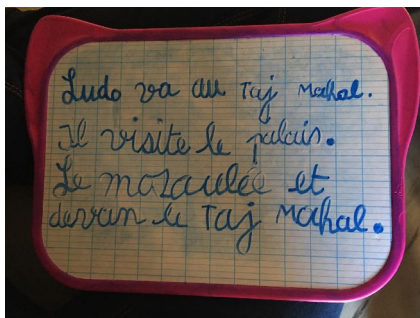 Ludo va au Taj Mahal.
Il visite le palais.
Le mozaulée et
devan le Taj Mahal.